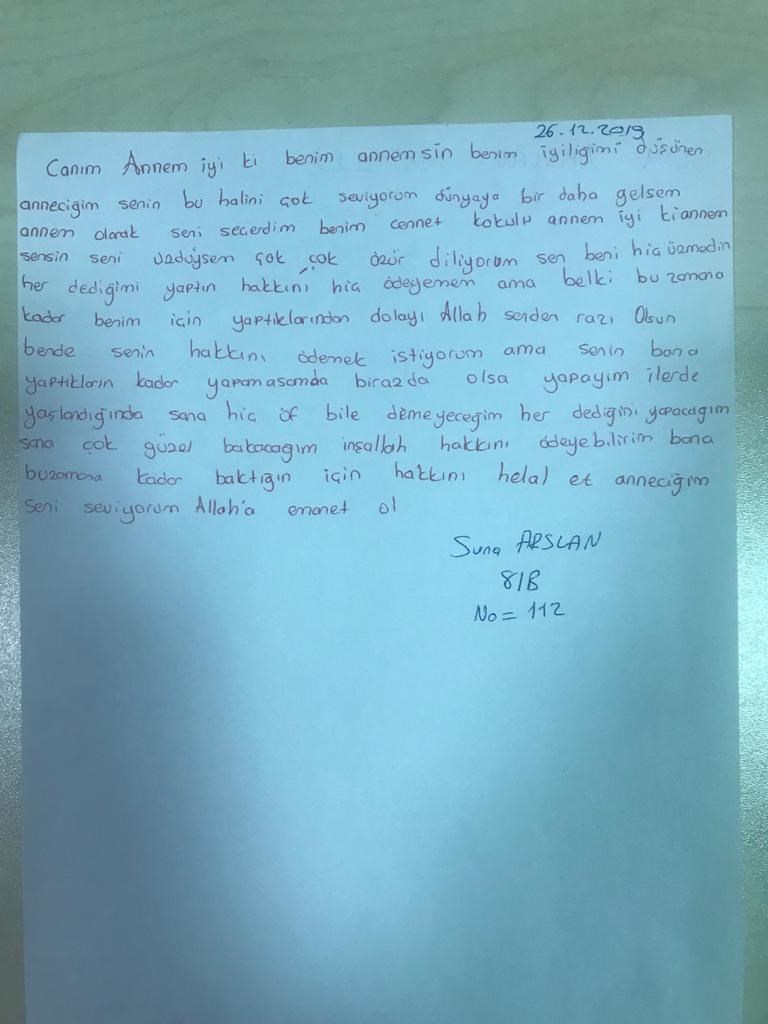 26.12.2019
Canım Annem iyi ki benim annemsin benim iyiligimi düşünen
anneciğim senin bu halini çok seviyorum dünyaya bir daha gelsem
annem olarak seni seçerdim benim cennet kokulu annem iyi ki annem
sensin seni üzdüysem çok çok özür diliyorum sen beni hiç üzmedin
her dediğimi yaptın hakkını hiç ödeyemem ama belki bu zamana
kadar benim için yaptıklarından dolayı Allah senden razı Olsun
bende senin hakkını ödemek istiyorum ama senin bana
yaptıkların kadar yapamasamda birazda olsa yapayım ilerde
yaşlandığında sana hiç öf bile demeyeceğim her dediğini yapacağım
sana çok güzel bakacağım inşallah hakkını ödeyebilirim bana
buzamana kadar baktığın için hakkını helal et anneciğim
seni seviyorum Allah'a emanet ol
Suna ARSLAN
8/B
No = 112